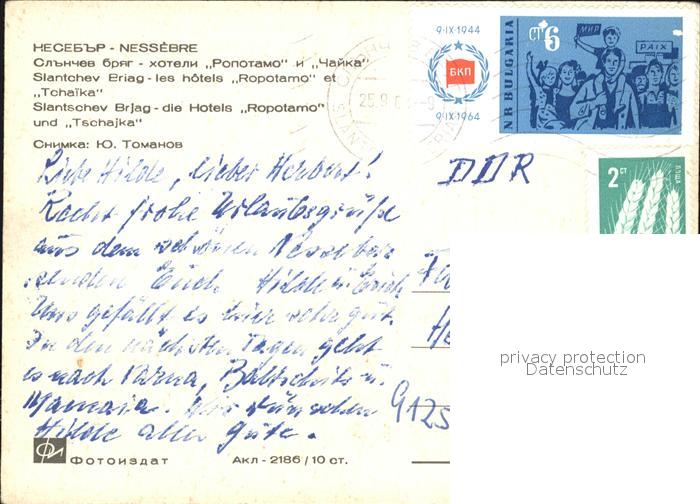 НЕСЕБЪР - NESSÈBRE
Слънчев бряг - хотели „Ропотамо" и „Чайка"
Slantchev Briag - les hôtels „Ropotamo" et
„Tchaïka"
Slantschev Brjag - die Hotels „Ropotamo"
und „Tschajka"
Снимка: Ю. Томанов
9·IX·1944
БКП
9·IX·1964
N R BULGARIA
СТ 6
МИР
PAIX
25.9.6
2 СТ
DDR
Liebe Hilde, lieber Herbert!
Recht frohe Urlaubsgrüße
aus dem schönen Nessebar
senden Euch Hilde u. Erich
Uns gefällt es hier sehr gut.
In den nächsten Tagen geht
es nach Varna, Baltschik u.
Mamaia. Wir wünschen
Hilde alles Gute.
9125
privacy protection
Datenschutz
Фотоиздат Акл - 2186 / 10 ст.